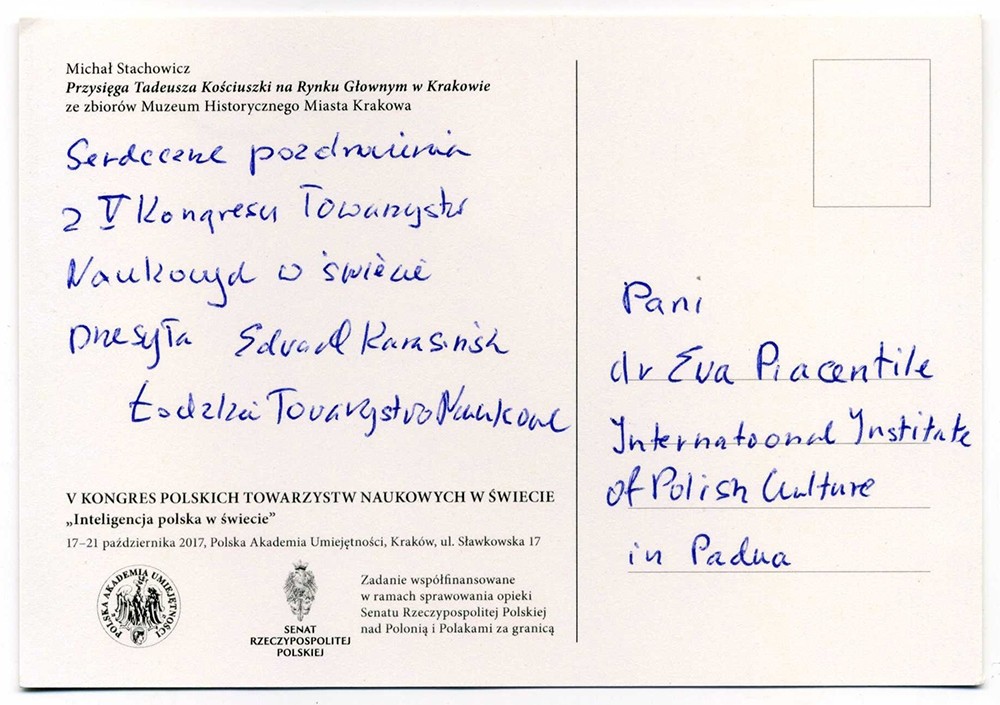 Michał Stachowicz
Przysięga Tadeusza Kościuszki na Rynku Głownym w Krakowie
ze zbiorów Muzeum Historycznego Miasta Krakowa
Serdeczne pozdrowienia
z V Kongresu Towarzystw
Naukowych w świecie
przesyła Edward Karasiński
Łódzkie Towarzystwo Naukowe
V KONGRES POLSKICH TOWARZYSTW NAUKOWYCH W ŚWIECIE
„Inteligencja polska w świecie”
17–21 października 2017, Polska Akademia Umiejętności, Kraków, ul. Sławkowska 17
POLSKA AKADEMIA UMIEJĘTNOŚCI
SENAT
RZECZYPOSPOLITEJ
POLSKIEJ
Zadanie współfinansowane
w ramach sprawowania opieki
Senatu Rzeczypospolitej Polskiej
nad Polonią i Polakami za granicą
Pani
dr Eva Piacentile
Internatoonal Institute
of Polish Culture
in Padua